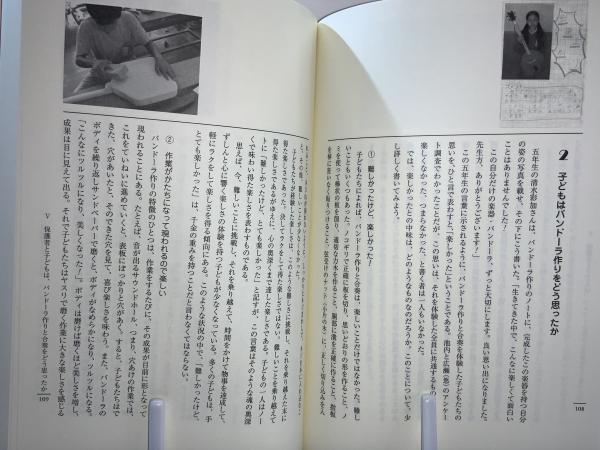 2 子どもはバンドーラ作りをどう思ったか
五年生の清水彩加さんは、バンドーラ作りのノートに、完成したこの楽器を持つ自分
の姿の写真を載せ、その下にこう書いた。「生きてきた中で、こんなに楽しくて面白い
ことはありませんでした！
この自分だけの楽器・バンドーラ、ずっと大切にします。良い思い出になりました。
先生方、ありがとうございます！」
この五年生の言葉に示されるように、バンドーラ作りと合奏を体験した子どもたちの
思いを、ひと言で表わすと、「楽しかった」ということである。池内と広瀬（悠）のアンケー
ト調査でわかったことだが、この思いは、それを体験した全員に共通するもの
楽しくなかった、つまらなかった、と書く者は一人もいなかった。
では、楽しかったとの中味は、どのようなものなのだろうか。このことについて、少
し詳しく書いてみよう。
① 難しかったけど、楽しかった！
子どもたちによれば、バンドーラ作りと合奏は、楽しいことだけではなかった。難し
いこともいくつもあった。ノコギリで正確に板を切り、思いどおりの形を作ること、ノ
ミを使って
108
得た楽しさである。決してラクをして得た楽しさではない。難しいことを乗り越えて
得た楽しさであるがゆえに、心の奥深くまで達した楽しさである。子どもの一人はノー
トに「難しかったけど、とても楽しかった」と記すが、この言葉はそのような魂の奥深
くで味わい得た楽しさを表わすものである。
思えば、今、難しいことに挑戦し、それを乗り越えて、時間をかけて物事を達成して、
ずしんと心に響く楽しさの体験を持つ子どもが少なくなっている。多くの子どもは、手
軽にラクをして楽しさを得る傾向にある。このような状況の中で、「難しかったけど、
とても楽しかった」は、千金の重みを持つことだと言わなくてはならない。
② 作業がかたちになって現われるので楽しい
バンドーラ作りの特徴のひとつは、作業をするたびに、その成果が目前に形となって
現われることにある。たとえば、音が出るサウンドホール、つまり、穴あけの作業では、
これをていねいに進めていくと、表板にぽっかりと穴があく。すると、子どもたちはで
きた、穴があいたと、そのできた穴を見て、喜び楽しさを味わう。また、バンドーラの
ボディを繰り返しサンドペーパーで磨くと、ボディがなめらかになり、ツルツルになる。
「こんなにツルツルになり、美しくなった！」。ボディは磨けば磨くほど美しさを増し、
成果は目に見えて出る。それで子どもたちはヤスリで磨く作業に大きな楽しさを感じる
Ⅴ 保護者と子どもは、バンドーラ作りと合奏をどう思ったか
109